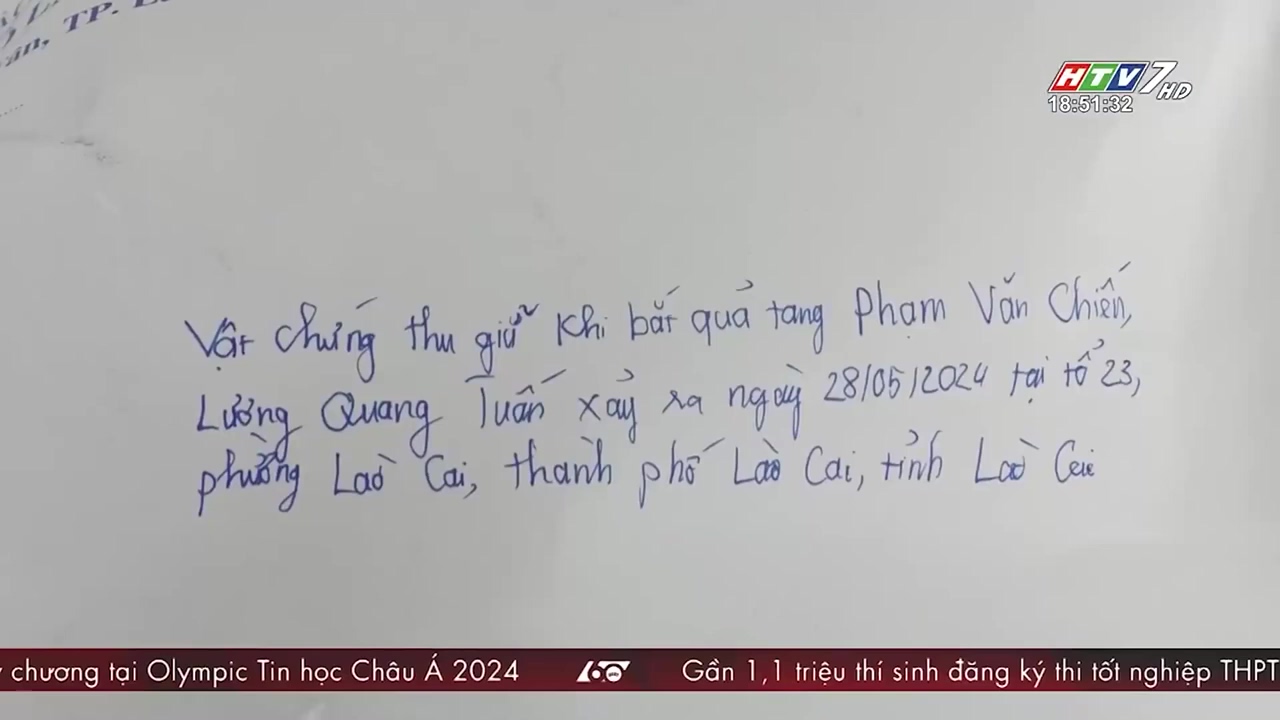 ấn, TP. L
HTV7 HD
18:51:32
Vật chứng thu giữ khi bắt quả tang Phạm Văn Chiến,
Lương Quang Tuấn xảy ra ngày 28/05/2024 tại tổ 23,
phường Lào Cai, thành phố Lào Cai, tỉnh Lào Cai
chương tại Olympic Tin học Châu Á 2024 60 giây Gần 1,1 triệu thí sinh đăng ký thi tốt nghiệp THPT